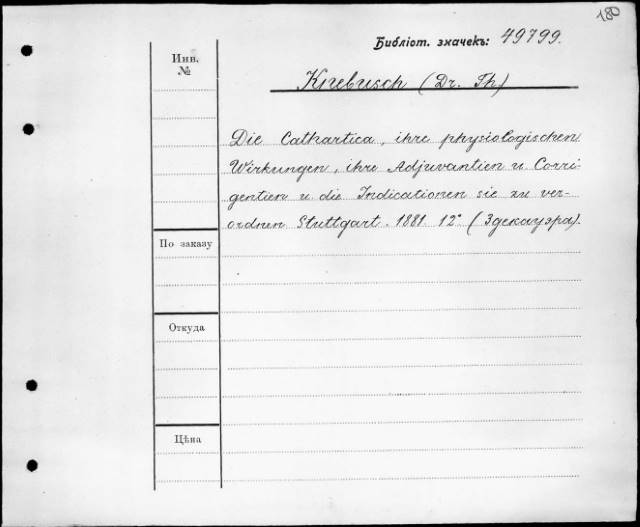 180
Библіот. значекъ: 49799.
Инв.
№
Knebusch (Dr. Th)
Die Cathartica, ihre physiologischen
Wirkungen, ihre Adjuvantien u. Corri-
gentien u die Indicationen sie zu ver-
ordnen Stuttgart. 1881 12° (Здекауэра).
По заказу
Откуда
Цѣна